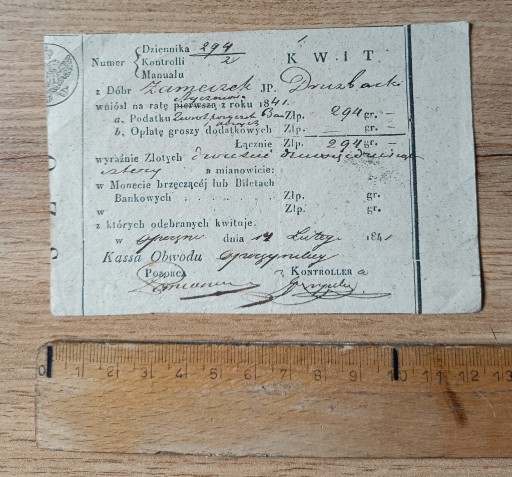 Dziennika 294
Numer Kontrolli 2 K W I T
Manualu
z Dóbr Zameczek JP. Druzbacki
wniósł na ratę styczniową pierwszą z roku 1841.
a. Podatku Złp. 294 gr. —
b. Opłatę groszy dodatkowych Złp. — gr. —
Łącznie Złp. 294 gr. —
wyraźnie Złotych dwieście dziewięćdziesiąt
cztery a mianowicie:
w Monecie brzęczącéj lub Biletach
Bankowych . . . . . Złp. gr.
w Złp. gr.
z których odebranych kwituje.
w Opocznie dnia 14 Lutego 1841
Kassa Obwodu Opoczyńskiego
POBORCA KONTROLLER
0 1 2 3 4 5 6 7 8 9 10 11 12 13